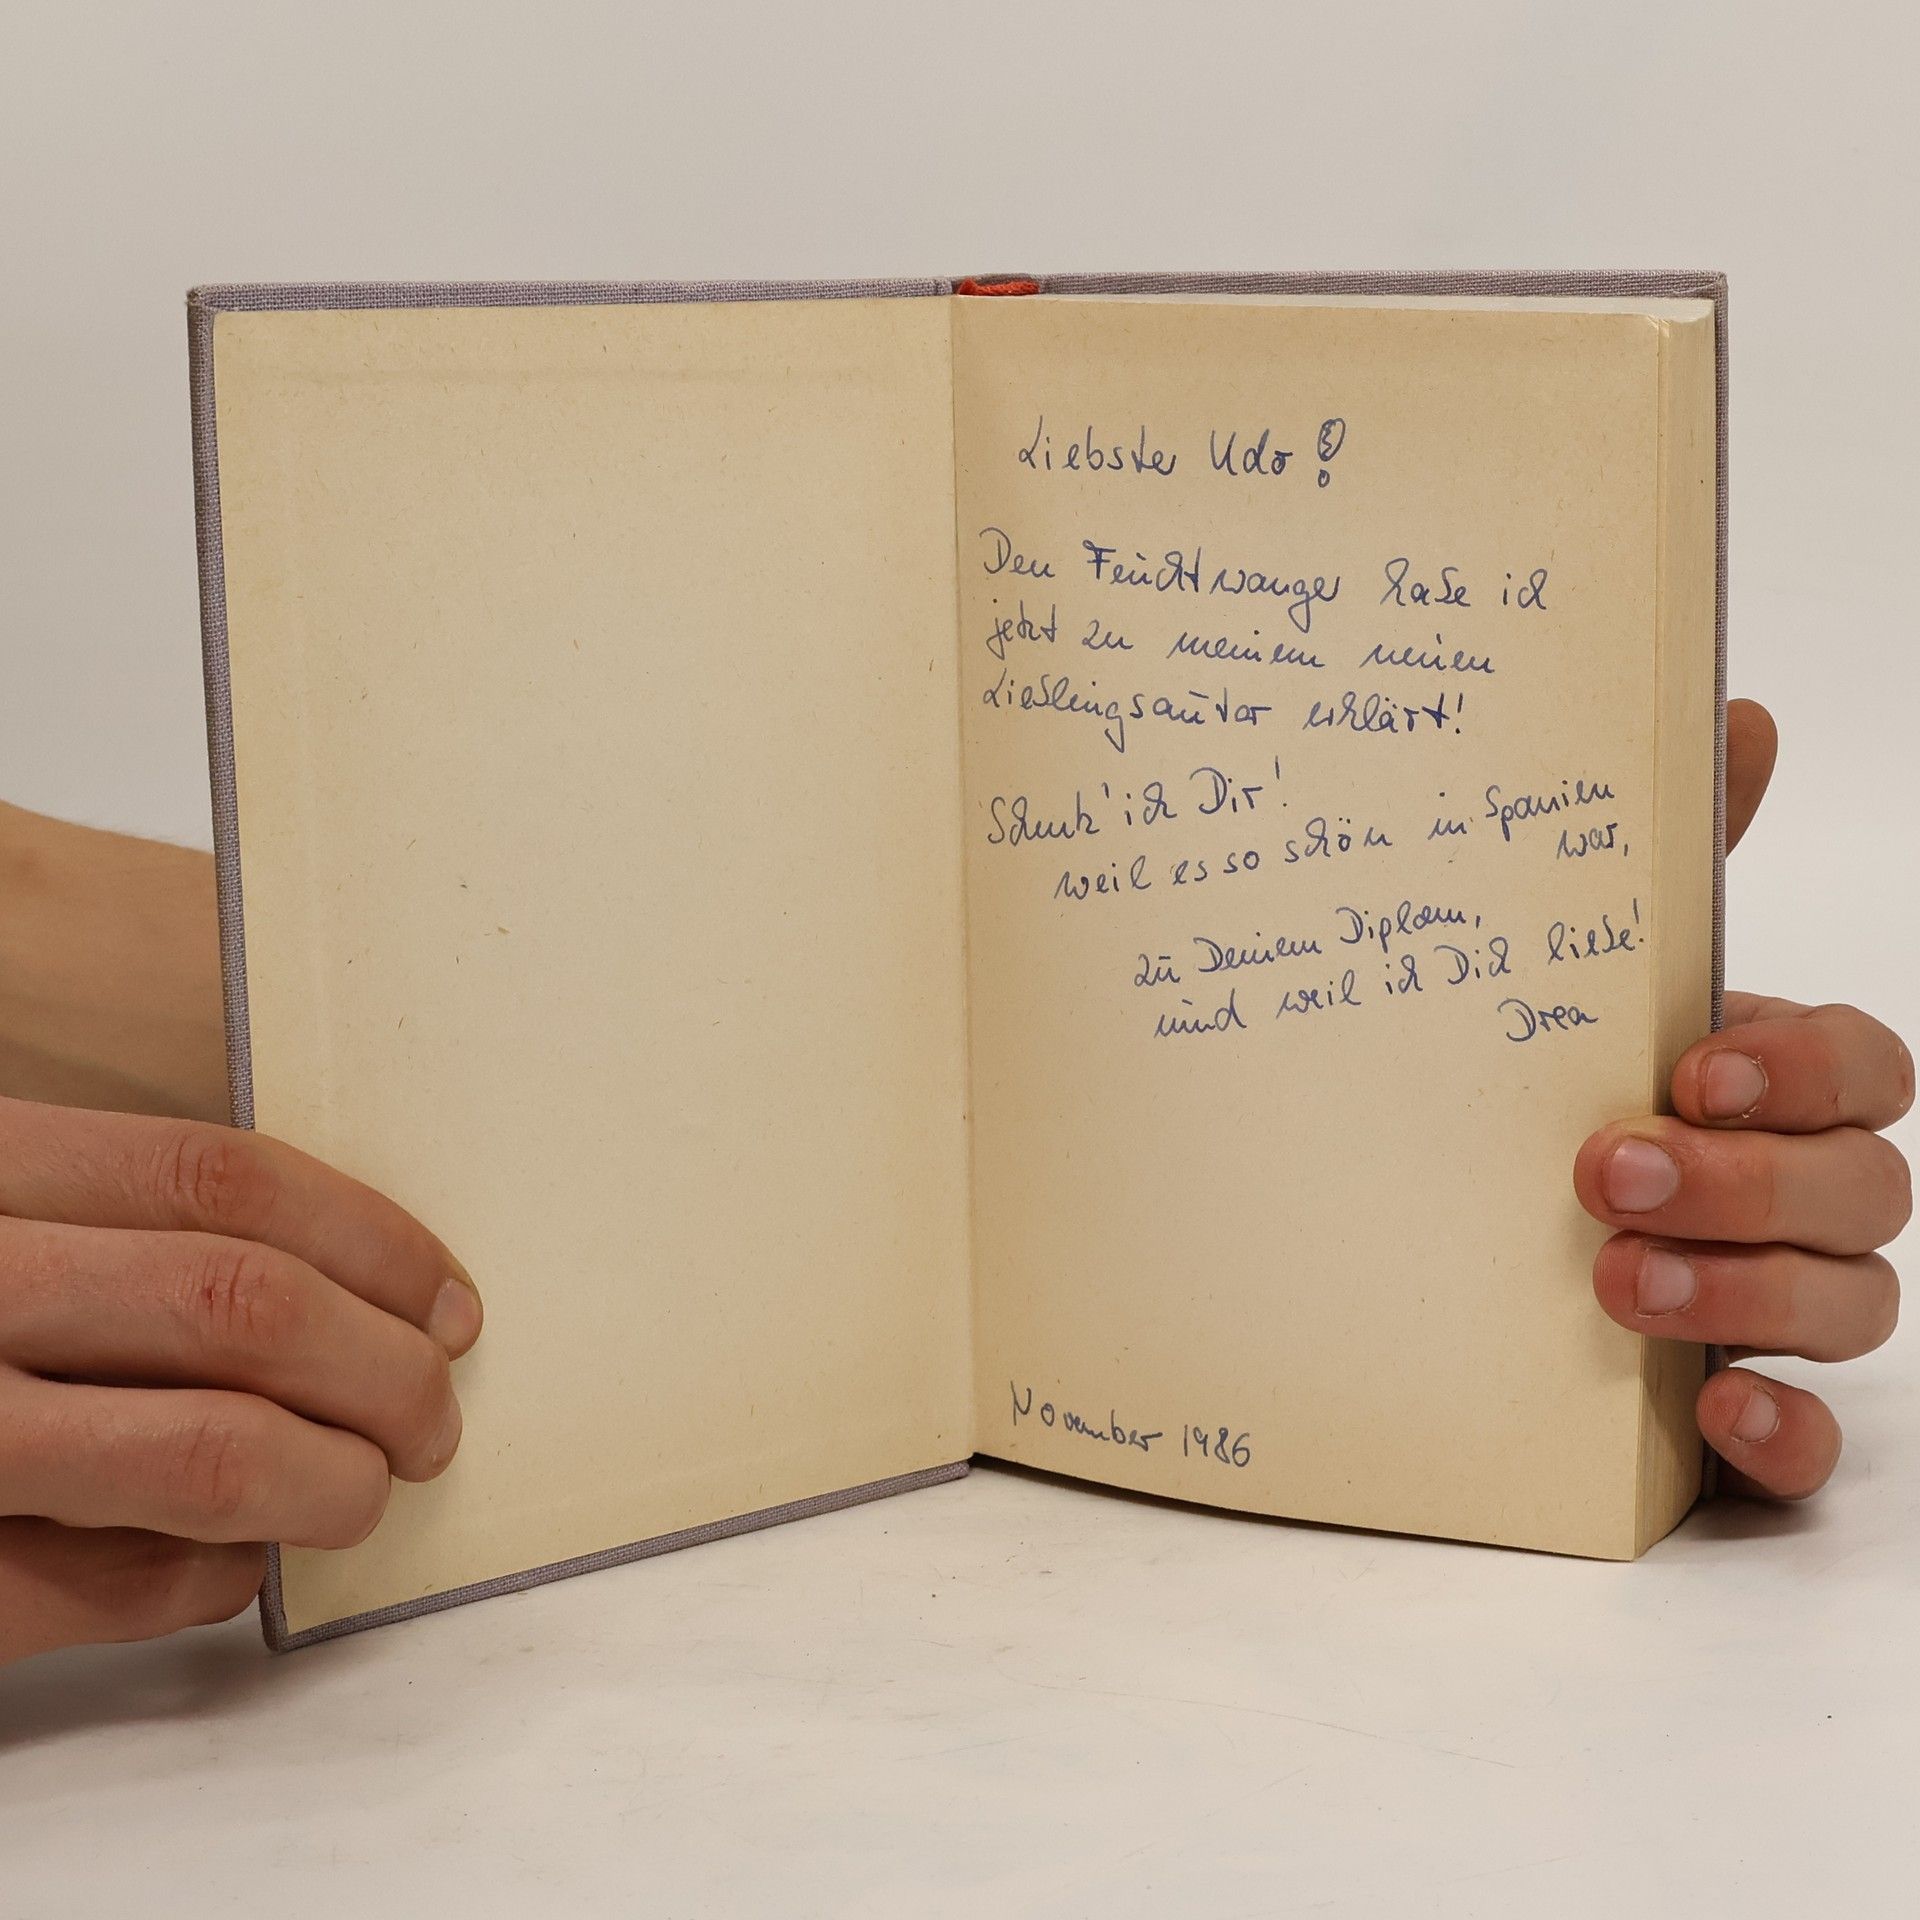 Liebster Udo!
Den Feuchtwanger habe ich
jetzt zu meinem neuen
Lieblingsautor erklärt!
Schenk' ich Dir!
weil es so schön in Spanien
war,
zu Deinem Diplom,
und weil ich Dich liebe!
Drea
November 1986